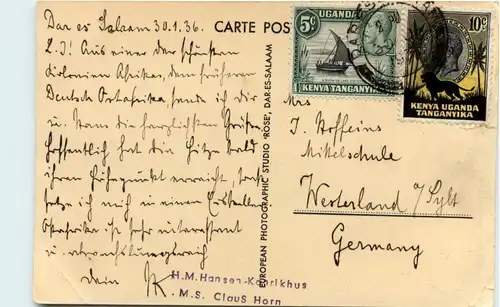 Dar es Salaam 30.1.36.
L. J! Aus einer der schönsten
Kolonien Afrikas, dem früheren
Deutsch Ostafrika, sende ich dir
u. Hans die herzlichsten Grüße.
Hoffentlich hat die Hitze bald
ihren Höhepunkt erreicht, sonst
setze ich mich in einen Eiskeller.
Ostafrika ist sehr interessant
u. abwechslungsreich
Dein
H.M.Hansen-Kohrikhus
M.S. Claus Horn
CARTE POS
EUROPEAN PHOTOGRAPHIC STUDIO "ROSE", DAR-ES-SALAAM
5c UGANDA
KENYA TANGANYIKA
10c
KENYA UGANDA
TANGANYIKA
Mrs
J. Stoffeins
Mittelschule
Westerland a/Sylt
Germany